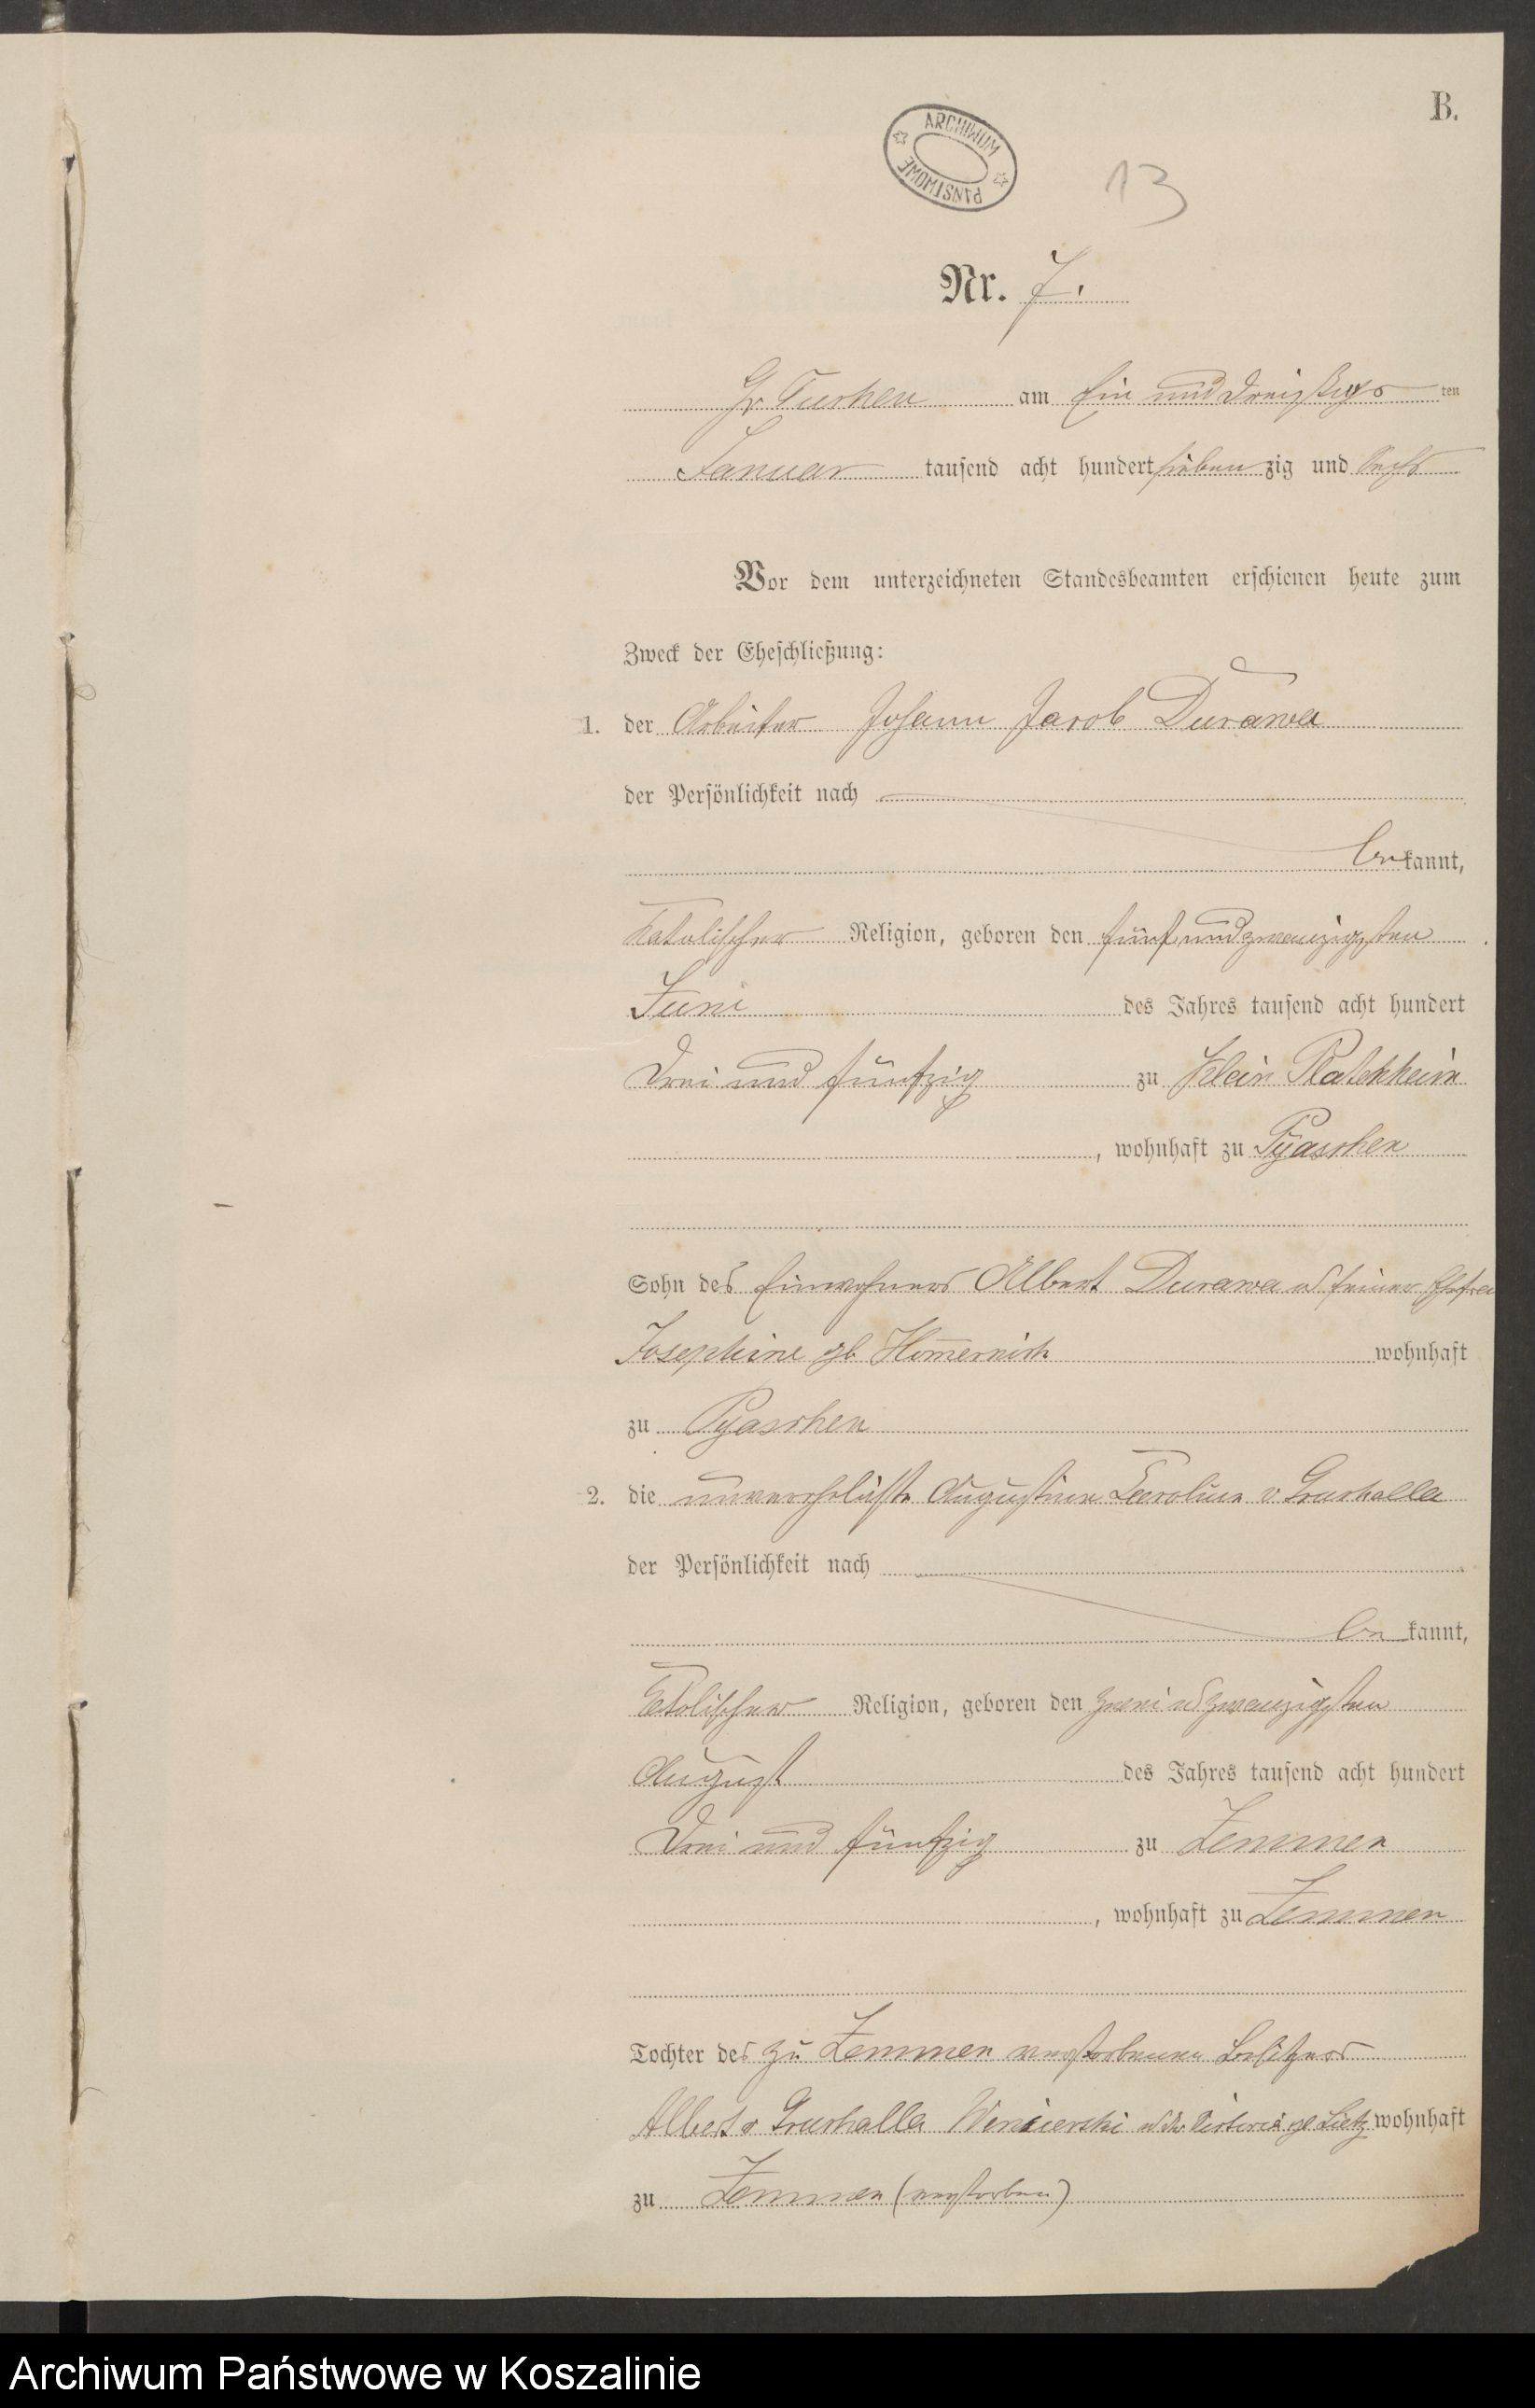 B.
ARCHIWUM
PAŃSTWOWE
13
Nr. 7.
Gr Tuchen am Ein und dreißigs ten
Januar tausend acht hundert sieben zig und sechs
Vor dem unterzeichneten Standesbeamten erschienen heute zum
Zweck der Eheschließung:
1. der Arbeiter Johann Jacob Durawa
der Persönlichkeit nach
be kannt,
katolischer Religion, geboren den fünf und zwanzigsten
Juni des Jahres tausend acht hundert
drei und fünfzig zu Klein Platenheim
, wohnhaft zu Pyaschen
Sohn des Einwohners Albert Durawa u seiner Ehefrau
Josephine gb wohnhaft
zu Pyaschen
2. die unverehelichte Augustine Caroline v Gruchalla
der Persönlichkeit nach
be kannt,
katolischer Religion, geboren den zwei u zwanzigsten
August des Jahres tausend acht hundert
drei und fünfzig zu Zemmen
, wohnhaft zu Zemmen
Tochter des zu Zemmen verstorbenen Besitzers
Albert v Gruchalla Wensierski u der Victoria gb Lietz wohnhaft
zu Zemmen (verstorben)
Archiwum Państwowe w Koszalinie